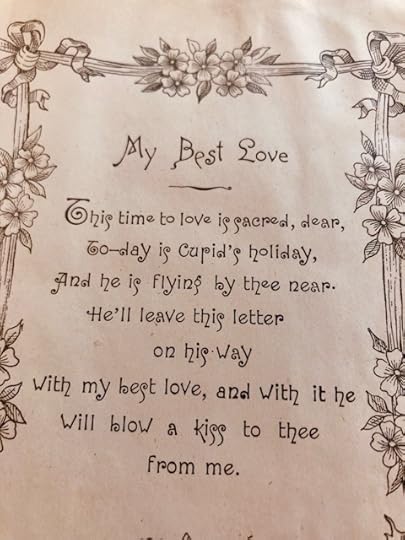 My Best Love
This time to love is sacred, dear,
To-day is Cupid's holiday,
And he is flying by thee near.
He'll leave this letter
on his way
With my best love, and with it he
Will blow a kiss to thee
from me.